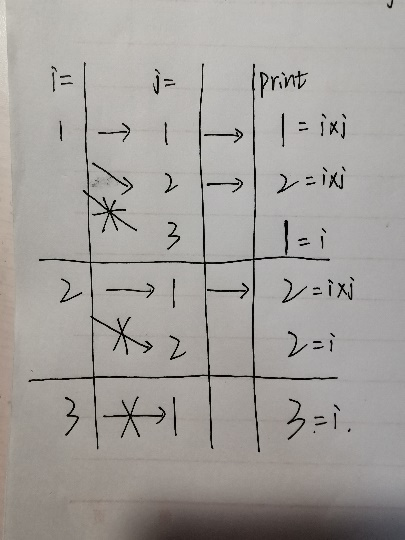 i= j= print
1 → 1 → 1 = i×j
2 → 2 = i×j
3 1 = i
2 → 1 → 2 = i×j
2 2 = i
3 → 1 3 = i.